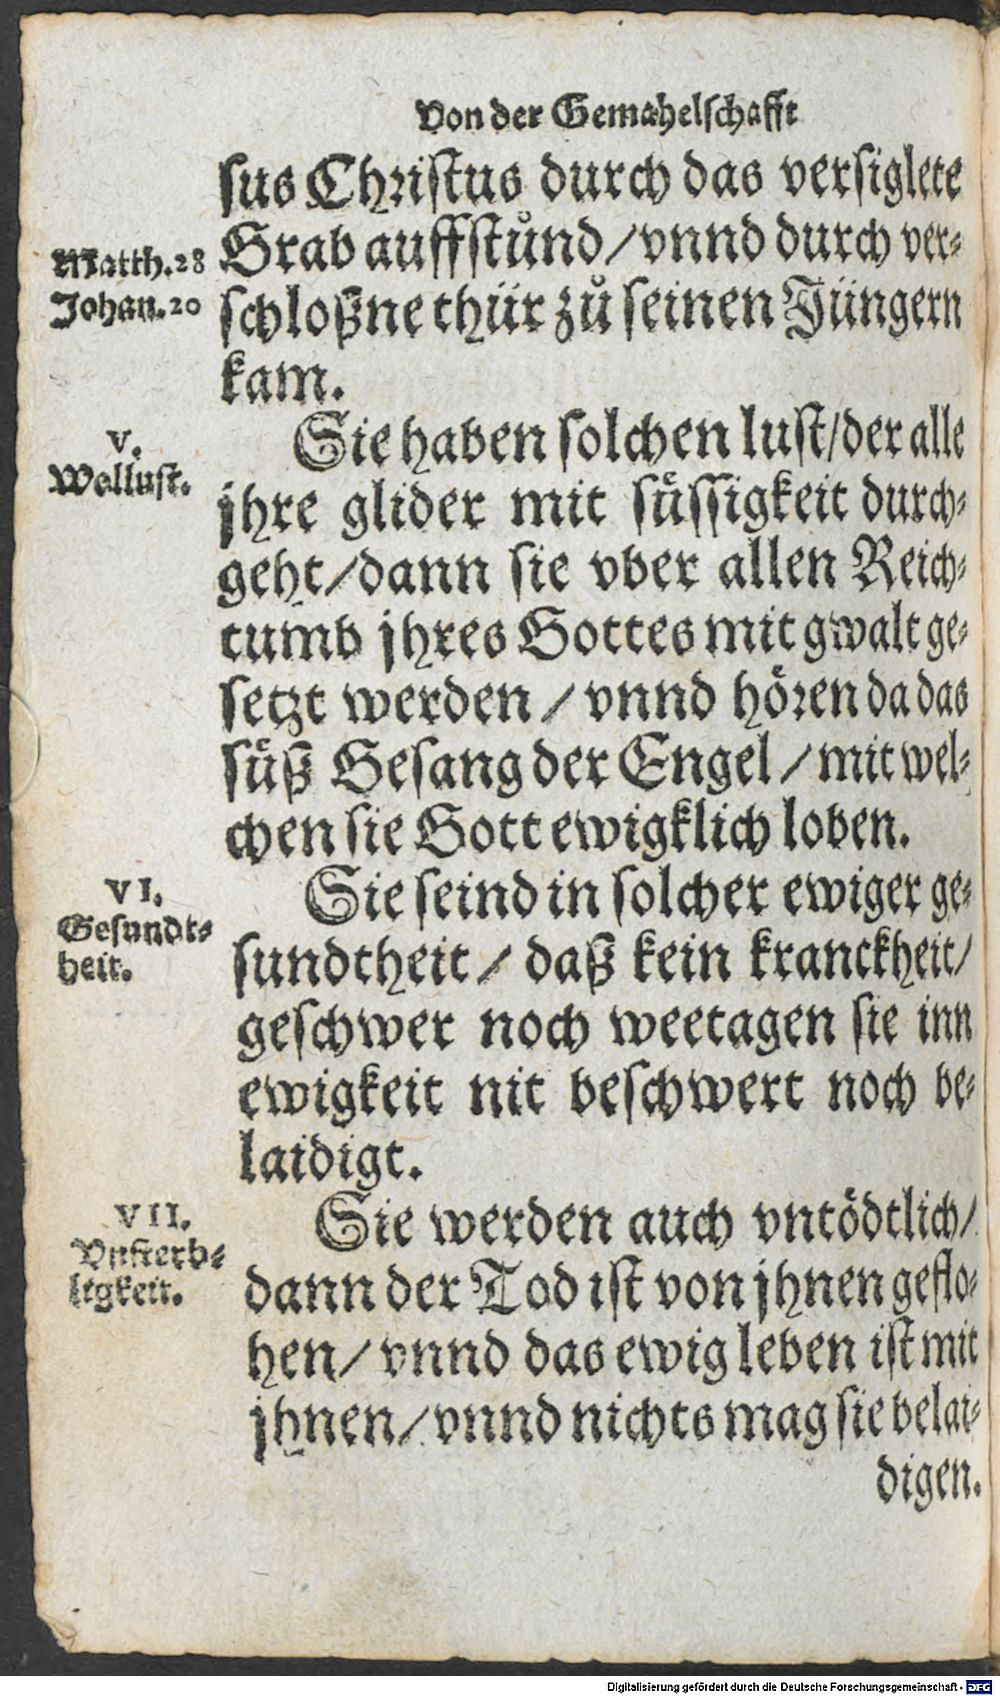 Von der Gemahelschafft
sus Christus durch das versiglete
Matth.28
Grab auffstuͦnd / vnnd durch ver-
Johan.20
schloßne thür zuͦ seinen Jüngern
kam.
V.
Sie haben solchen lust / der alle
Wollust.
jhre glider mit süssigkeit durch-
geht / dann sie vber allen Reich-
tumb jhres Gottes mit gwalt ge-
setzt werden / vnnd hören da das
süß Gesang der Engel / mit wel-
chen sie Gott ewigklich loben.
VI.
Sie seind in solcher ewiger ge-
Gesundt-
heit.
sundtheit / daß kein kranckheit /
geschwer noch weetagen sie inn
ewigkeit nit beschwert noch be-
laidigt.
VII.
Sie werden auch vntödtlich /
Vnsterb-
ligkeit.
dann der Tod ist von jhnen geflo-
hen / vnnd das ewig leben ist mit
jhnen / vnnd nichts mag sie belai-
digen.
Digitalisierung gefördert durch die Deutsche Forschungsgemeinschaft - DFG